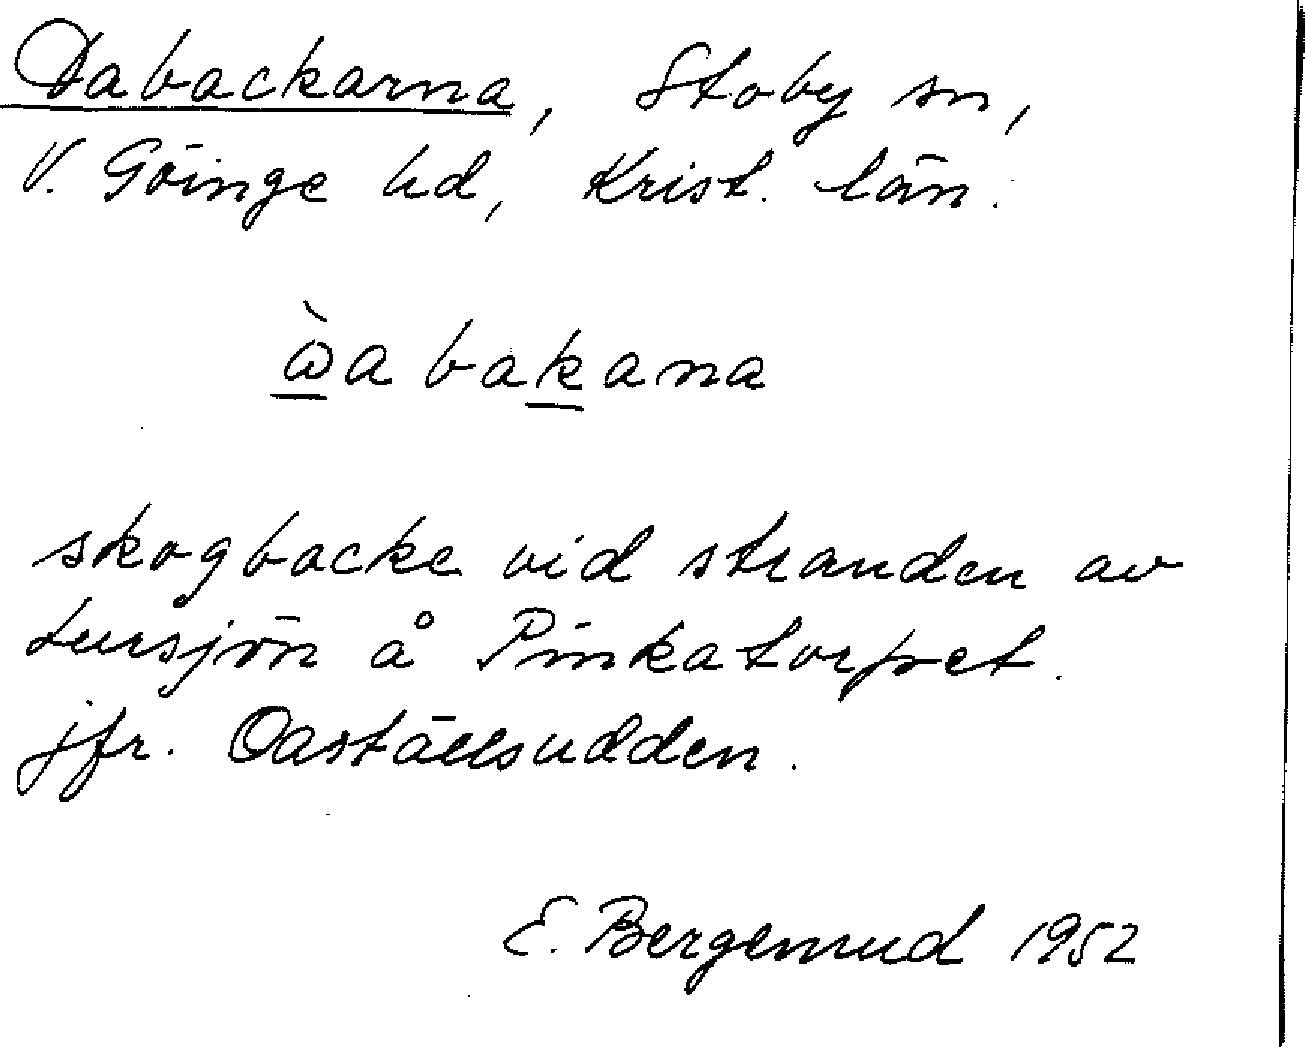 Oabackarna, Stoby sn,
V. Göinge hd, Krist. län.
ὼa bakana
skogbacke vid stranden av
Lursjön å Pinkatorpet.
jfr. Oaställsudden.
E. Bergenrud 1952